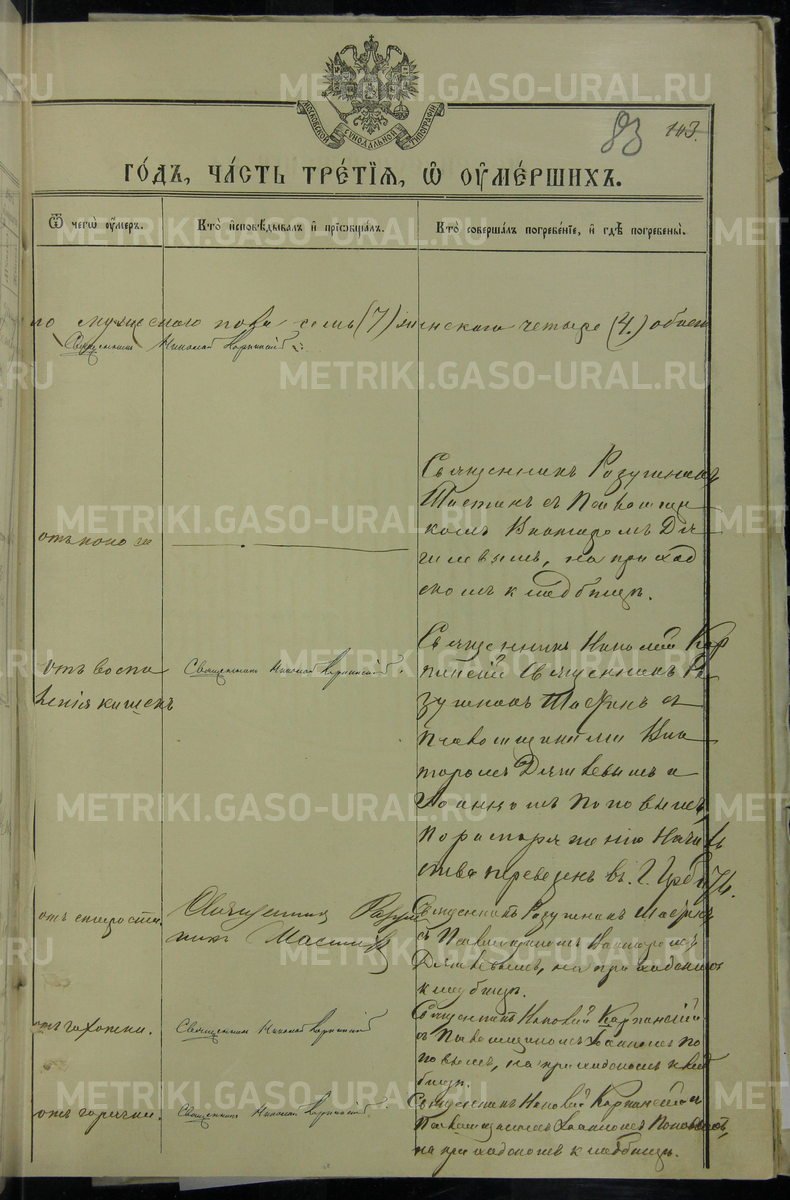 METRIKI.GASO-URAL.RU
МОСКОВСКОЙ СУНОДАЛЬНОЙ ТИПОГРАФІИ
83 143.
ГО́ДЪ, ЧА́СТЬ ТРЕ́ТІѦ, Ѽ ОУМЕ́РШИХЪ.
Ѿ чегѡ̀ оу́меръ.
Кто̀ и҆сповѣ́дывалъ и҆ пріѻбща́лъ.
Кто̀ соверша́лъ погребе́ніе, и҆ гдѣ̀ погребены̀.
мужескаго пола семь (7) женскаго четыре (4.) обоего
Священникъ Николай Карпинскій
отъ поноса
Священникъ Разумникъ
Мастинъ съ Псаломщи
комъ Викторомъ
на приход
скомъ кладбищѣ.
Отъ воспа
ленія кишекъ
Священникъ Николай Карпинскій.
Священники Николай Кар
пинскій Священникъ Ра
зумникъ Мастинъ съ
Псаломщиками Вик
торомъ и
Іоанномъ Поповымъ,
По распоряженію Началь
ства перевезенъ въ г.
отъ старости.
Священникъ Разум
никъ Мастинъ
Священникъ Разумникъ Мастинъ
съ Псаломщикомъ Викторомъ
на приходскомъ
кладбищѣ.
отъ чахотки.
Священникъ Николай Карпинскій
Священникъ Николай Карпинскій
съ Псаломщикомъ Іоанномъ По
повымъ, на приходскомъ клад
бищѣ.
отъ горячки.
Священникъ Николай Карпинскій
Священникъ Николай Карпинскій и
Псаломщикомъ Іоанномъ Поповымъ,
на приходскомъ кладбищѣ.